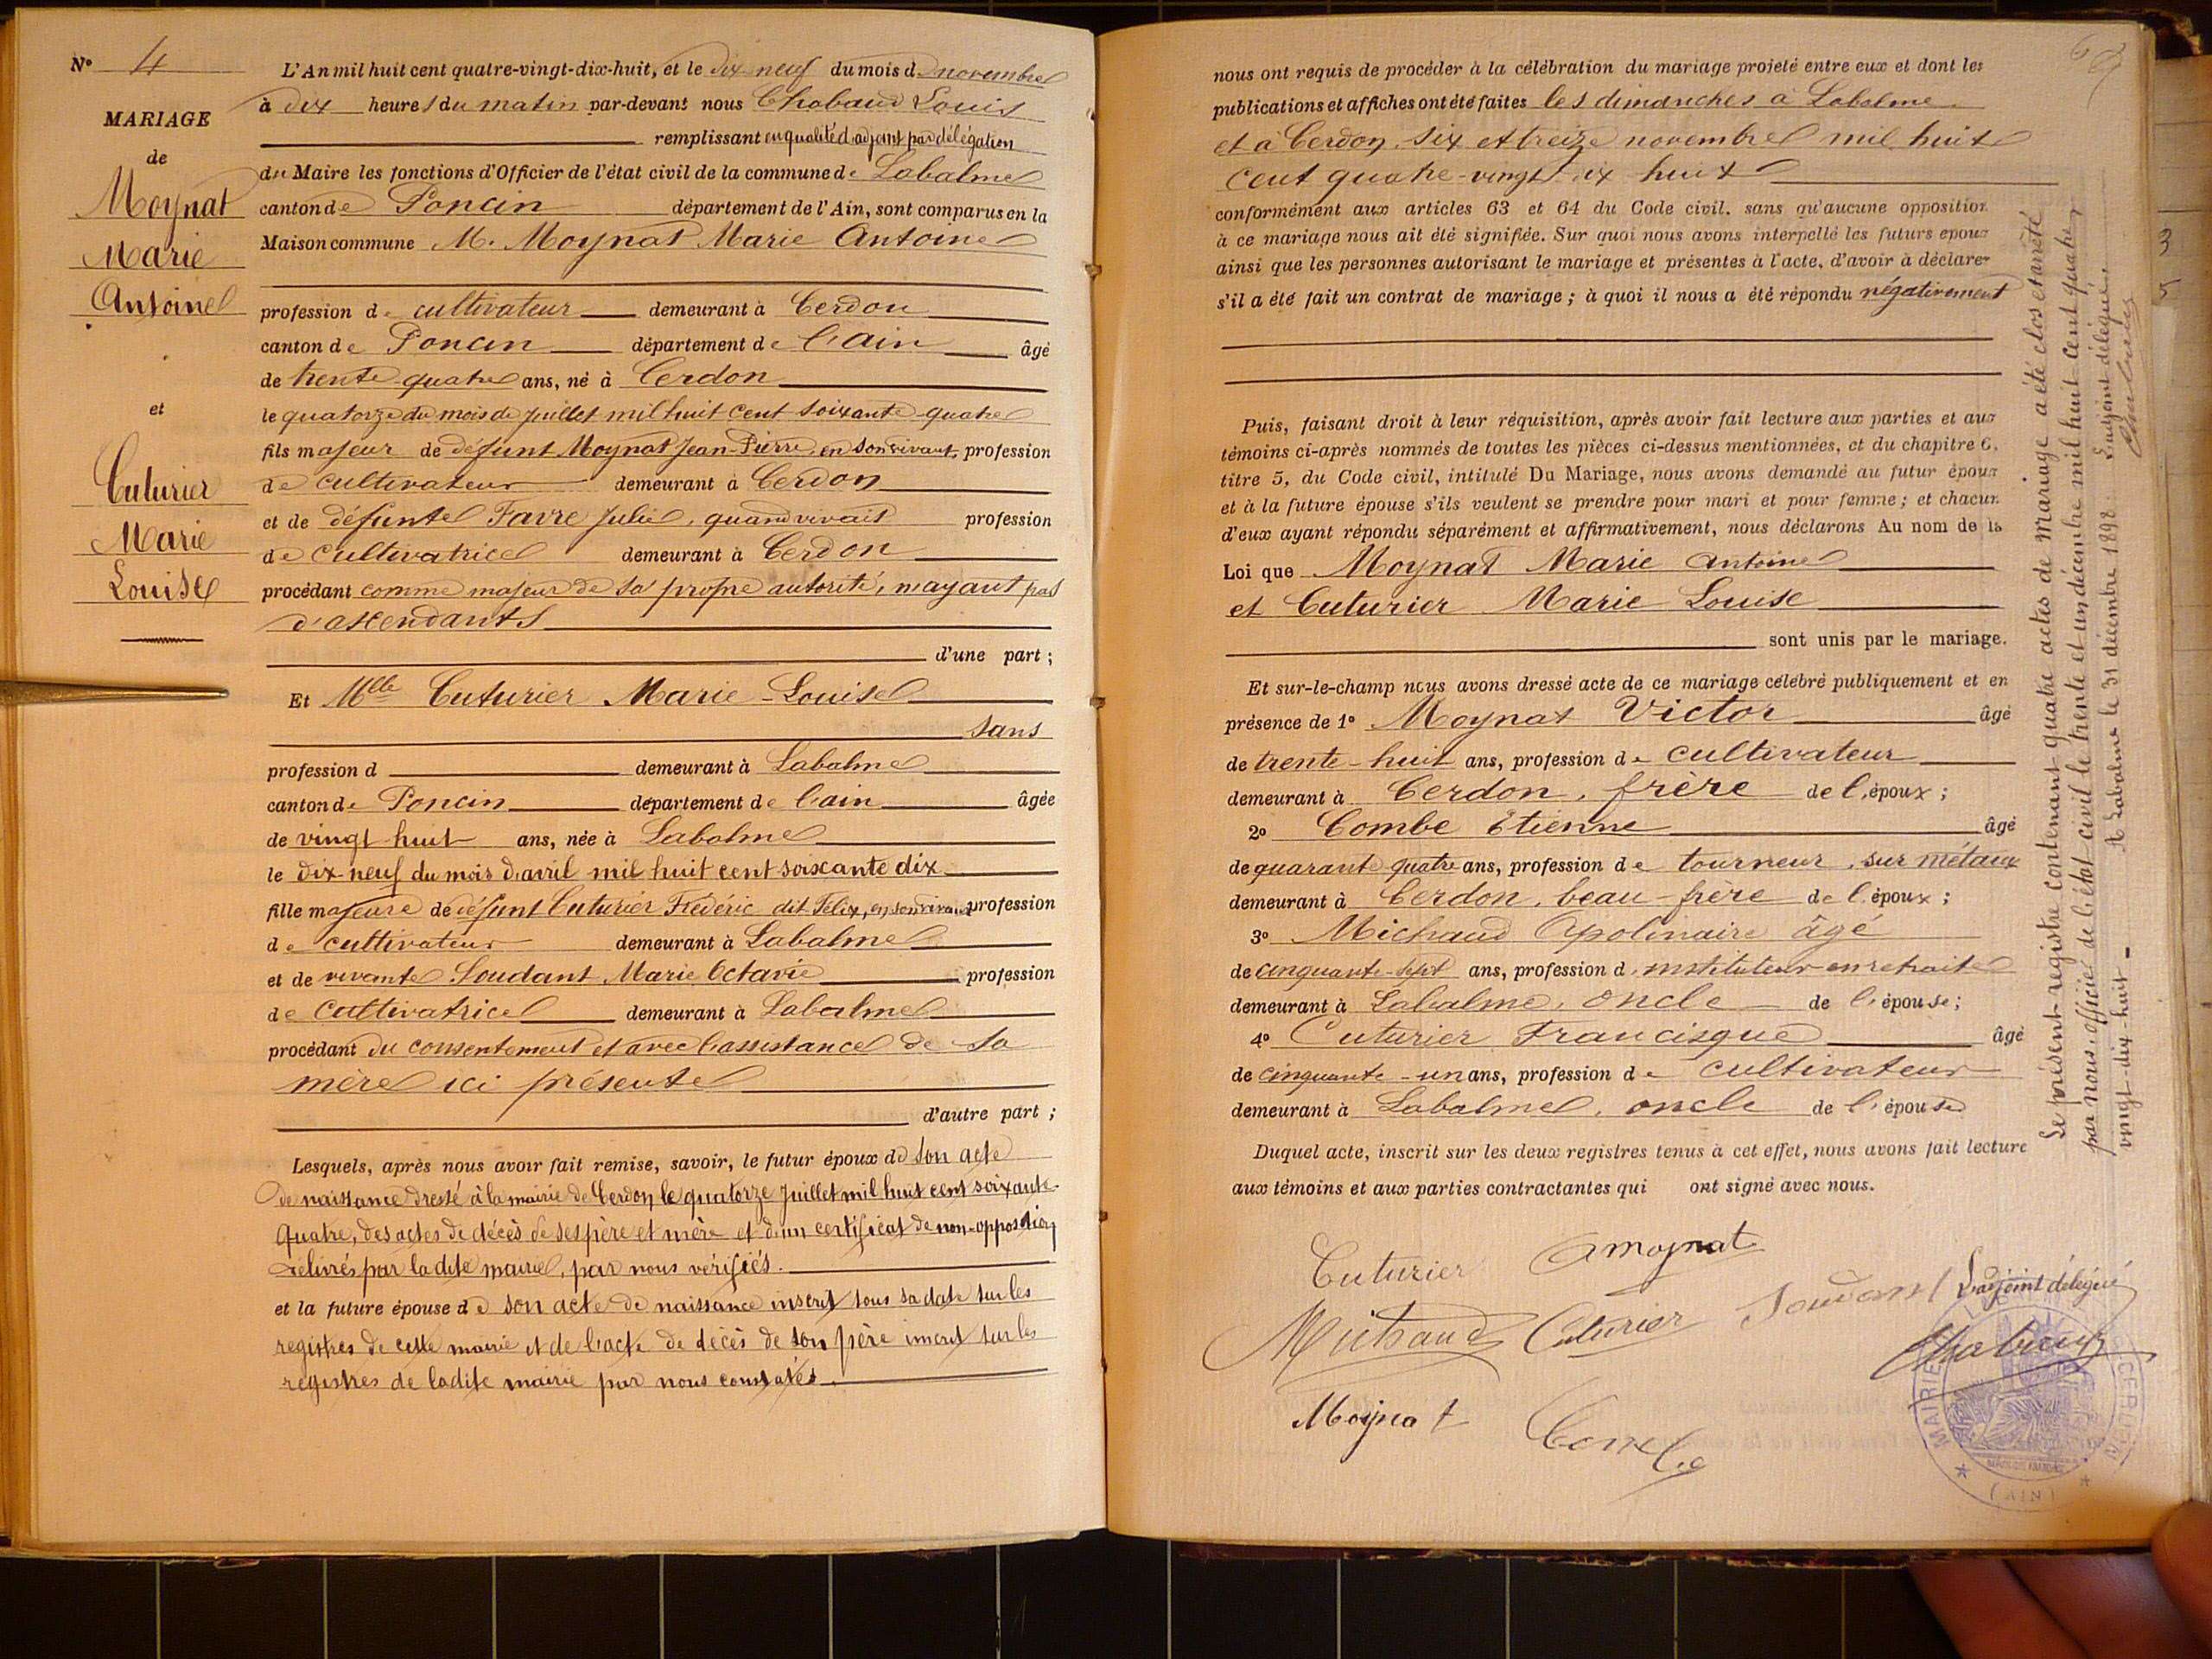 N° 4
MARIAGE
de
Moynat
Marie
Antoine
et
Cuturier
Marie
Louise
L'An mil huit cent quatre-vingt-dix-huit, et le dix neuf du mois de novembre
à dix heures du matin par-devant nous Chabaud Louis
remplissant en qualité d'adjoint par délégation
du Maire les fonctions d'Officier de l'état civil de la commune de Labalme
canton de Poncin département de l'Ain, sont comparus en la
Maison commune M. Moynat Marie Antoine
profession de cultivateur demeurant à Cerdon
canton de Poncin département de l'ain âgé
de trente-quatre ans, né à Cerdon
le quatorze du mois de juillet mil huit cent soixante-quatre
fils majeur de défunt Moynat Jean-Pierre, en son vivant, profession
de cultivateur demeurant à Cerdon
et de défunte Favre Julie, quand vivait profession
de cultivatrice demeurant à Cerdon
procédant comme majeur de sa propre autorité, n'ayant pas
d'ascendants
d'une part ;
Et Mlle Cuturier Marie-Louise
sans
profession d demeurant à Labalme
canton de Poncin département de l'ain âgée
de vingt huit ans, née à Labalme
le dix-neuf du mois d'avril mil huit cent soixante dix
fille majeure de défunt Cuturier Frédéric dit Félix, en son vivant profession
de cultivateur demeurant à Labalme
et de vivante Soudant Marie Octavie profession
de cultivatrice demeurant à Labalme
procédant du consentement et avec l'assistance de sa
mère ici présente
d'autre part ;
Lesquels, après nous avoir fait remise, savoir, le futur époux de son acte
de naissance dressé à la mairie de Cerdon, le quatorze juillet mil huit cent soixante-
quatre, des actes de décès de ses père et mère et d'un certificat de non-opposition
délivrés par la dite mairie, par nous vérifiés.
et la future épouse de son acte de naissance inscrit sous sa date sur les
registres de cette mairie et de l'acte de décès de son père inscrit sur les
registres de ladite mairie par nous constatés.
nous ont requis de procéder à la célébration du mariage projeté entre eux et dont les
publications et affiches ont été faites les dimanches à Labalme
et à Cerdon, six et treize novembre mil huit
cent quatre-vingt dix huit
conformément aux articles 63 et 64 du Code civil, sans qu'aucune opposition
à ce mariage nous ait été signifiée. Sur quoi nous avons interpellé les futurs époux
ainsi que les personnes autorisant le mariage et présentes à l'acte, d'avoir à déclarer
s'il a été fait un contrat de mariage ; à quoi il nous a été répondu négativement
Puis, faisant droit à leur réquisition, après avoir fait lecture aux parties et aux
témoins ci-après nommés de toutes les pièces ci-dessus mentionnées, et du chapitre 6,
titre 5, du Code civil, intitulé Du Mariage, nous avons demandé au futur époux
et à la future épouse s'ils veulent se prendre pour mari et pour femme ; et chacun
d'eux ayant répondu séparément et affirmativement, nous déclarons Au nom de la
Loi que Moynat Marie Antoine
et Cuturier Marie Louise
sont unis par le mariage.
Et sur-le-champ nous avons dressé acte de ce mariage célébré publiquement et en
présence de 1° Moynat Victor âgé
de trente-huit ans, profession de cultivateur
demeurant à Cerdon, frère de l'époux ;
2° Combe Étienne âgé
de quarante quatre ans, profession de tourneur sur métaux
demeurant à Cerdon, beau-frère de l'époux ;
3° Michaud Apolinaire âgé
de cinquante-sept ans, profession d'instituteur en retraite
demeurant à Labalme, oncle de l'épouse ;
4° Cuturier Francisque âgé
de cinquante-un ans, profession de cultivateur
demeurant à Labalme, oncle de l'épouse
Duquel acte, inscrit sur les deux registres tenus à cet effet, nous avons fait lecture
aux témoins et aux parties contractantes qui ont signé avec nous.
Cuturier
A Moynat
Michaud
Cuturier
Soudant
L'adjoint délégué
Chabaud
Moynat
Combe
MAIRIE
(AIN)
Le présent registre contenant quatre actes de mariage a été clos et arrêté
par nous, officier de l'état civil le trente et un décembre mil huit-cent quatre
vingt-dix-huit -
A Labalme le 31 décembre 1898
L'adjoint délégué
Chabaud
3
5